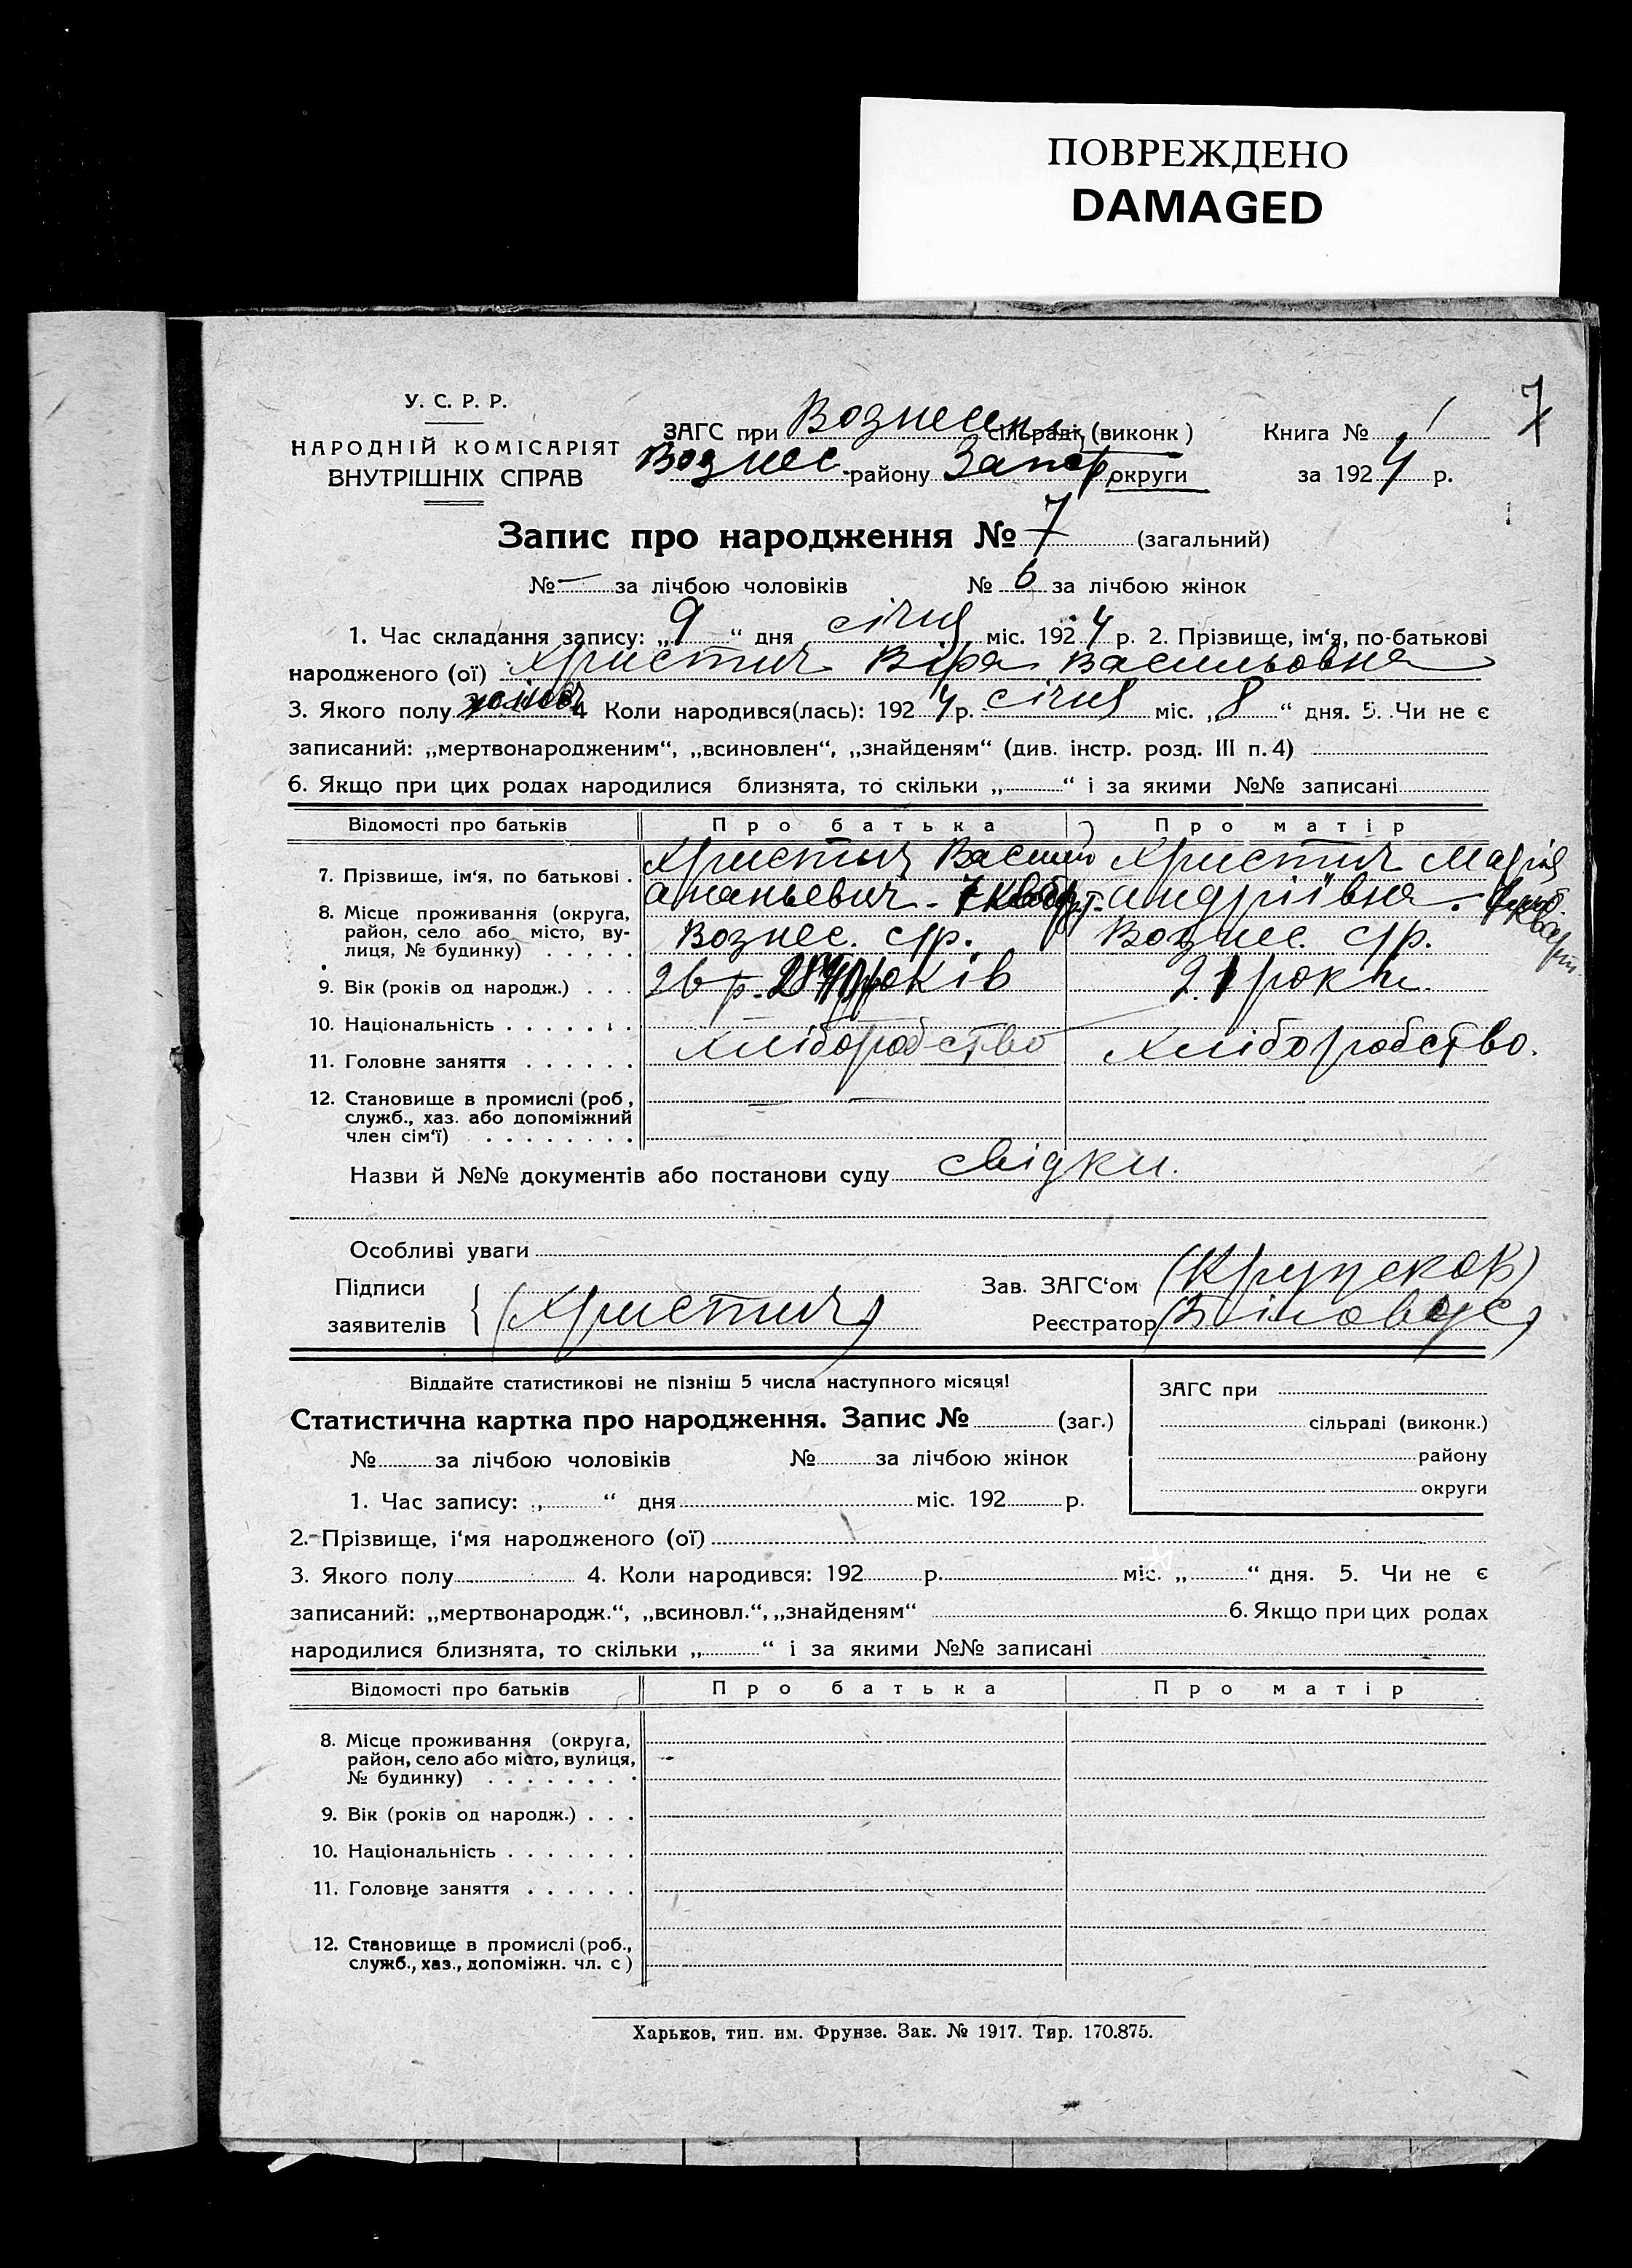 ПОВРЕЖДЕНО
DAMAGED
7
У. С. Р. Р.
НАРОДНІЙ КОМІСАРІЯТ
ВНУТРІШНІХ СПРАВ
ЗАГС при Вознесен. сільраді, (виконк )
Вознес. району Запор округи
Книга № 1
за 1924 р.
Запис про народження № 7 (загальний)
№ — за лічбою чоловіків № 6 за лічбою жінок
1. Час складання запису: „9“ дня січня міс. 1924 р. 2. Прізвище, ім‘я, по-батькові
народженого (ої) Христич Віра Васильовна
3. Якого полу жіноч 4 Коли народився(лась): 1924 р. січня міс. „8“ дня. 5. Чи не є
записаний: „мертвонародженим“, „всиновлен“, „знайденям“ (див. інстр. розд. III п. 4)
6. Якщо при цих родах народилися близнята, то скільки „ “ і за якими №№ записані
Відомості про батьків Про батька Про матір
7. Прізвище, ім‘я, по батькові . Христич Василь Христич Марія
ананьевич - 7 андріївна.
8. Місце проживання (округа,
район, село або місто, ву-
лиця, № будинку) . . . . . Вознес. с/р. Вознес. с/р.
9. Вік (років од народж.) . . . 26 р. років 21 роки
10. Національність . . . . . . .
11. Головне заняття . . . . . . хліборобство хліборобство.
12. Становище в промислі (роб,
служб., хаз. або допоміжний
член сім‘ї) . . . . . . . . —
Назви й №№ документів або постанови суду свідки.
Особливі уваги
Підписи
заявителів (Христич)
Зав. ЗАГС‘ом (Крупсков)
Реєстратор (Біловус)
Віддайте статистикові не пізніш 5 числа наступного місяця!
Статистична картка про народження. Запис № (заг.)
№ за лічбою чоловіків № за лічбою жінок
1. Час запису: „ “ дня міс. 192 р.
ЗАГС при
сільраді (виконк.)
району
округи
2. Прізвище, і‘мя народженого (ої)
3. Якого полу 4. Коли народився: 192 р. міс. „ “ дня. 5. Чи не є
записаний: „мертвонародж.“, „всиновл.“, „знайденям“ 6. Якщо при цих родах
народилися близнята, то скільки „ “ і за якими №№ записані
Відомості про батьків Про батька Про матір
8. Місце проживання (округа,
район, село або місто, вулиця,
№ будинку) . . . . . . . .
9. Вік (років од народж.) . . .
10. Національність . . . . . . .
11. Головне заняття . . . . . .
12. Становище в промислі (роб.,
служб., хаз., допоміжн. чл. с )
Харьков, тип. им. Фрунзе. Зак. № 1917. Тир. 170.875.